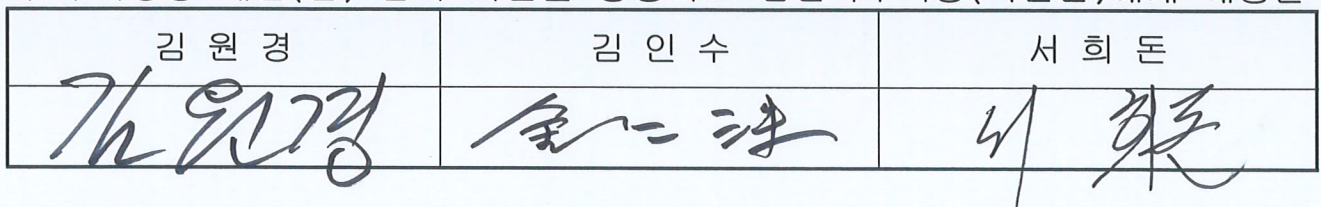 김 원 경 김 인 수 서 희 돈
김 원경 金仁洙 서 희돈